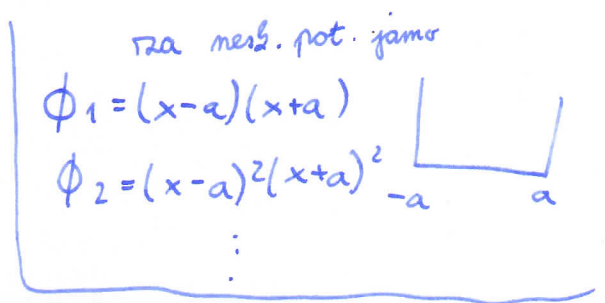 za nesk. pot. jamo
ϕ₁ = (x-a)(x+a)
ϕ₂ = (x-a)²(x+a)²
-a a
⋮